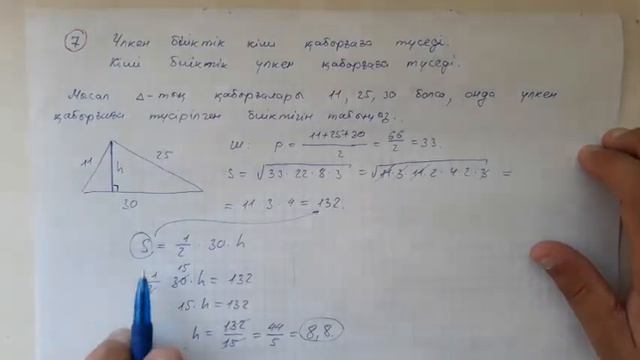 7 Үлкен биіктік кіші қабырғаға түседі.
Кіші биіктік үлкен қабырғаға түседі.
Мысал Δ-тың қабырғалары 11, 25, 30 болса, онда үлкен
қабырғаға түсірілген биіктігін табыңыз.
11 25 h 30
Ш: P = (11+25+30)/2 = 66/2 = 33.
S = √(33·22·8·3) = √(11·3·11·2·4·2·3) =
= 11·3·4 = 132.
S = 1/2 · 30·h
1/2 30·h = 132
15
15·h = 132
h = 132/15 = 44/5 = 8,8.